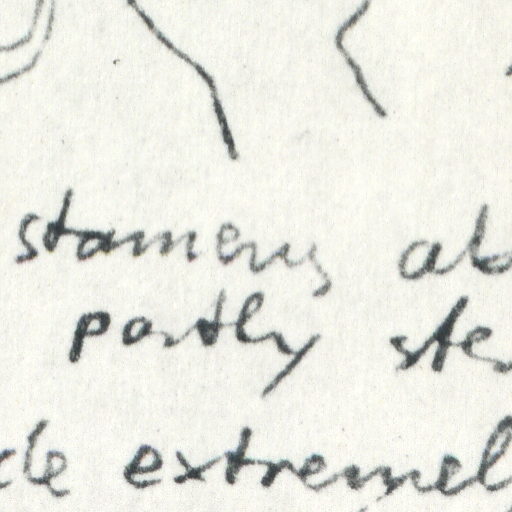 stamens ab
partly ste
cle extremel